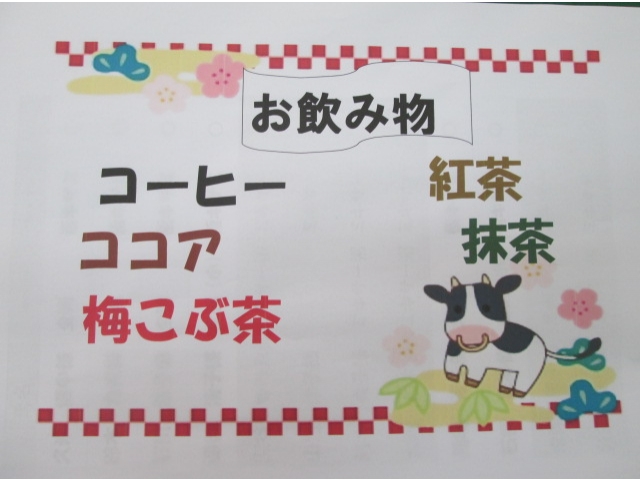 お飲み物
コーヒー
紅茶
ココア
抹茶
梅こぶ茶